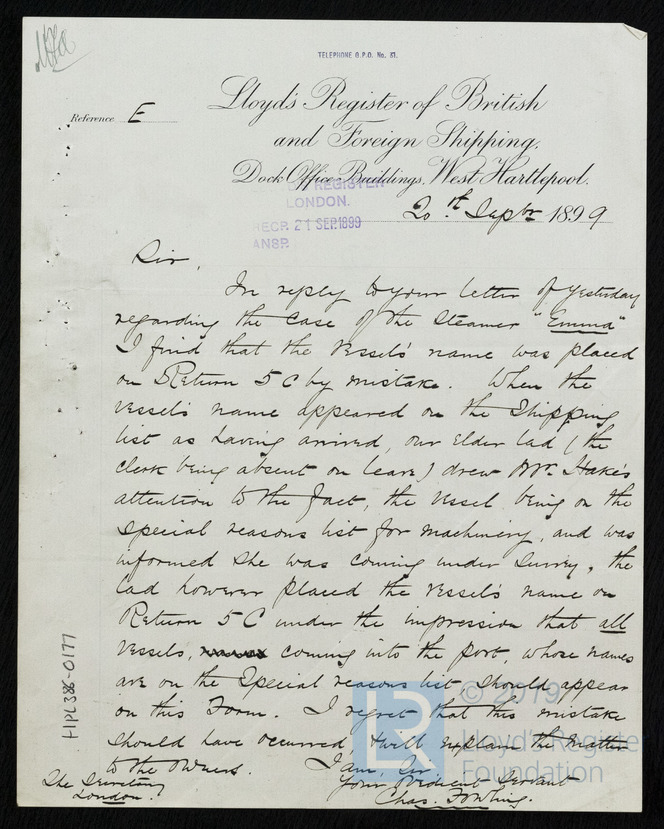 TELEPHONE G.P.O. No. 31.
Reference E
Lloyd's Register of British
and Foreign Shipping,
Dock Office Buildings, West Hartlepool.
REGISTER
LONDON.
RECP. 21 SEP.1899
ANSP.
20th Septbr 1899
Sir,
In reply to your letter of yesterday
regarding the case of the Steamer "Emma"
I find that the Vessel's name was placed
on Return 5C by mistake. When the
vessel's name appeared on the Shipping
list as having arrived, our Elder lad (the
clerk being absent on leave) drew Mr. Hake's
attention to the fact, the vessel being on the
special reasons list for machinery, and was
informed she was coming under Survey, the
lad however placed the Vessel's name on
Return 5C under the impression that all
Vessels, coming into the port, whose names
are on the Special reasons list, should appear
on this Form. I regret that this mistake
should have occurred & will explain the matter
to the owners. I am, Sir,
Your Obedient Servant
The Secretary
London.
HPL386-0177
LR
© 2019
Lloyd's Register
Foundation